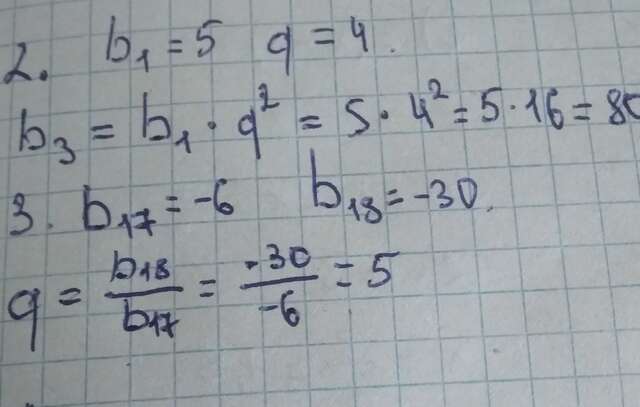 2. b₁ = 5 q = 4.
b₃ = b₁ · q² = 5 · 4² = 5 · 16 = 80
3. b₁₇ = -6 b₁₈ = -30.
q = b₁₈/b₁₇ = -30/-6 = 5